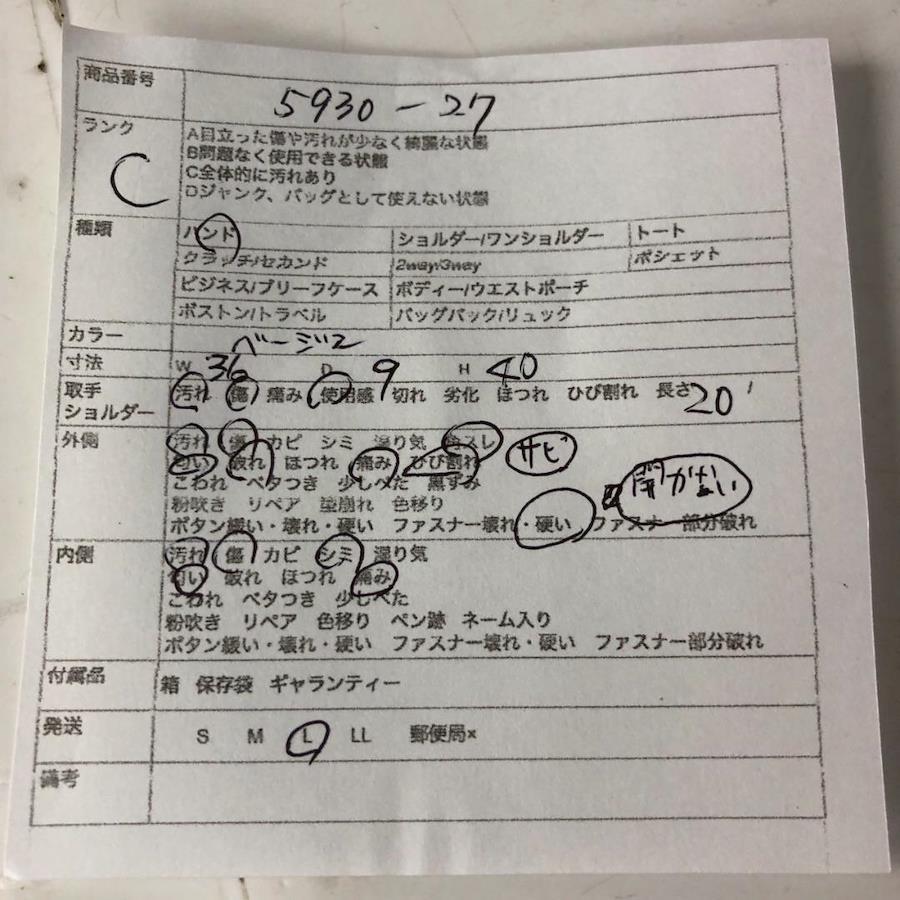 商品番号 5930-27
ランク C
A目立った傷や汚れが少なく綺麗な状態
B問題なく使用できる状態
C全体的に汚れあり
Dジャンク、バッグとして使えない状態
種類 ハンド ショルダー/ワンショルダー トート
クラッチ/セカンド 2way/3way ポシェット
ビジネス/ブリーフケース ボディー/ウエストポーチ
ボストン/トラベル バッグパック/リュック
カラー ベージュ
寸法 W 36 D 9 H 40
取手 汚れ 傷 痛み 使用感 切れ 劣化 ほつれ ひび割れ 長さ 20
ショルダー
外側 汚れ 傷 カビ シミ 湿り気 角スレ
匂い 破れ ほつれ 痛み ひび割れ サビ
こわれ ベタつき 少しべた 黒ずみ 開かない
粉吹き リペア 型崩れ 色移り
ボタン緩い・壊れ・硬い ファスナー壊れ・硬い ファスナー部分破れ
内側 汚れ 傷 カビ シミ 湿り気
匂い 破れ ほつれ 痛み
こわれ ベタつき 少しべた
粉吹き リペア 色移り ペン跡 ネーム入り
ボタン緩い・壊れ・硬い ファスナー壊れ・硬い ファスナー部分破れ
付属品 箱 保存袋 ギャランティー
発送 S M L LL 郵便局×
備考